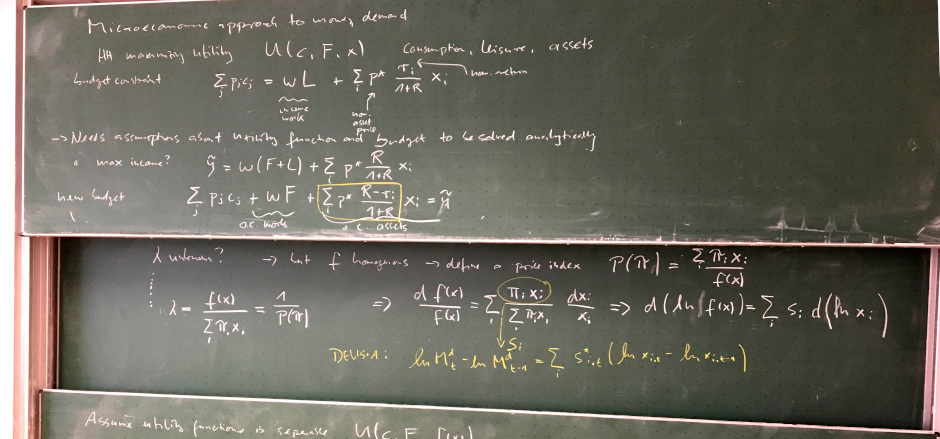 Microeconomic approach to money demand
HH maximizing utility U(c, F, x) consumption, leisure, assets
budget constraint ∑_j p_j c_j = wL + ∑_i p* r_i/(1+R) x_i nom. return
income work
nom. asset price
→ Needs assumptions about utility function and budget to be solved analytically
• max income? ỹ = w(F+L) + ∑_i p* R/(1+R) x_i
new budget ∑_j p_j c_j + wF + ∑_i p* (R-r_i)/(1+R) x_i = ỹ
o.c. work o.c. assets
λ unknown? → but f homogenous → define a price index P(π) = ∑_i π_i x_i / f(x)
λ = f(x) / ∑_i π_i x_i = 1/P(π) ⇒ d f(x) / f(x) = ∑_i π_i x_i / ∑_i π_i x_i dx_i/x_i ⇒ d(ln f(x)) = ∑_i s_i d(ln x_i)
s_i
DIVISIA: ln M^d_t - ln M^d_{t-1} = ∑_i s*_{i,t} (ln x_{i,t} - ln x_{i,t-1})
Assume utility function is separable U(c, F, f(x))